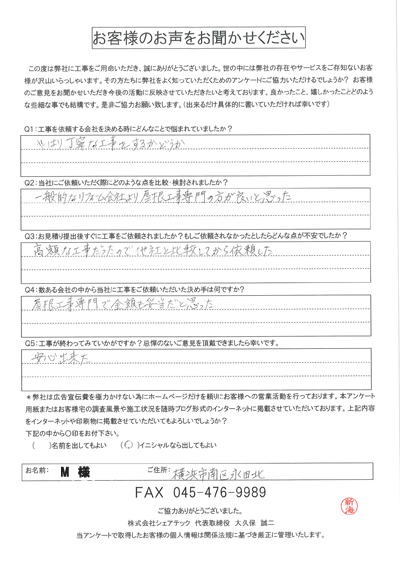 お客様のお声をお聞かせください
この度は弊社に工事をご用命いただき、誠にありがとうございました。世の中には弊社の存在やサービスをご存知ないお客
様が沢山いらっしゃいます。その方たちに弊社をよく知っていただくためのアンケートにご協力いただけるでしょうか？ お客様
のご意見をお聞かせいただき今後の活動に反映させていただきたいと考えております。良かったこと、嬉しかったことどのよう
な些細な事でも結構です。是非ご協力お願い致します。（出来るだけ具体的に書いていただければ幸いです）
Q1：工事を依頼する会社を決める時にどんなことで悩まれていましたか？
やはり丁寧な工事をするかどうか
Q2：当社にご依頼いただく際にどのような点を比較・検討されましたか？
一般的なリフォーム会社より屋根工事専門の方が良いと思った
Q3：お見積り提出後すぐに工事をご依頼されましたか？もしご依頼されなかったとしたらどんな点が不安でしたか？
高額な工事だったので他社と比較してから依頼した
Q4：数ある会社の中から当社に工事をご依頼いただいた決め手は何ですか？
屋根工事専門で金額も妥当だと思った
Q5：工事が終わってみていかがですか？忌憚のないご意見を頂戴できましたら幸いです。
安心出来た
＊弊社は広告宣伝費を極力かけない為にホームページだけを頼りにお客様への営業活動を行っております。本アンケート
用紙またはお客様宅の調査風景や施工状況を随時ブログ形式のインターネットに掲載させていただいております。上記内容
をインターネットや印刷物に掲載させていただいてもよろしいでしょうか？
下記の中から〇印をお付下さい。
（　）名前を出してもよい　（〇）イニシャルなら出してもよい
お名前： M 様　ご住所： 横浜市南区永田北
FAX 045-476-9989
ご協力ありがとうございました。
株式会社シェアテック 代表取締役 大久保 誠二
当アンケートで取得したお客様の個人情報は関係法規に基づき厳正に管理いたします。